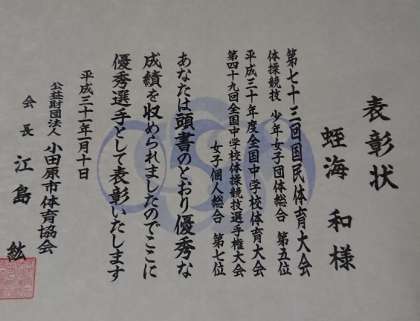 表彰状
蛭海 和様
第七十三回国民体育大会
体操競技 少年女子団体総合 第五位
平成三十年度全国中学校体育大会
第四十九回全国中学校体操競技選手権大会
女子個人総合 第七位
あなたは頭書のとおり優秀な
成績を収められましたのでここに
優秀選手として表彰いたします
平成三十一年一月十日
公益財団法人 小田原市体育協会
会長 江島 紘